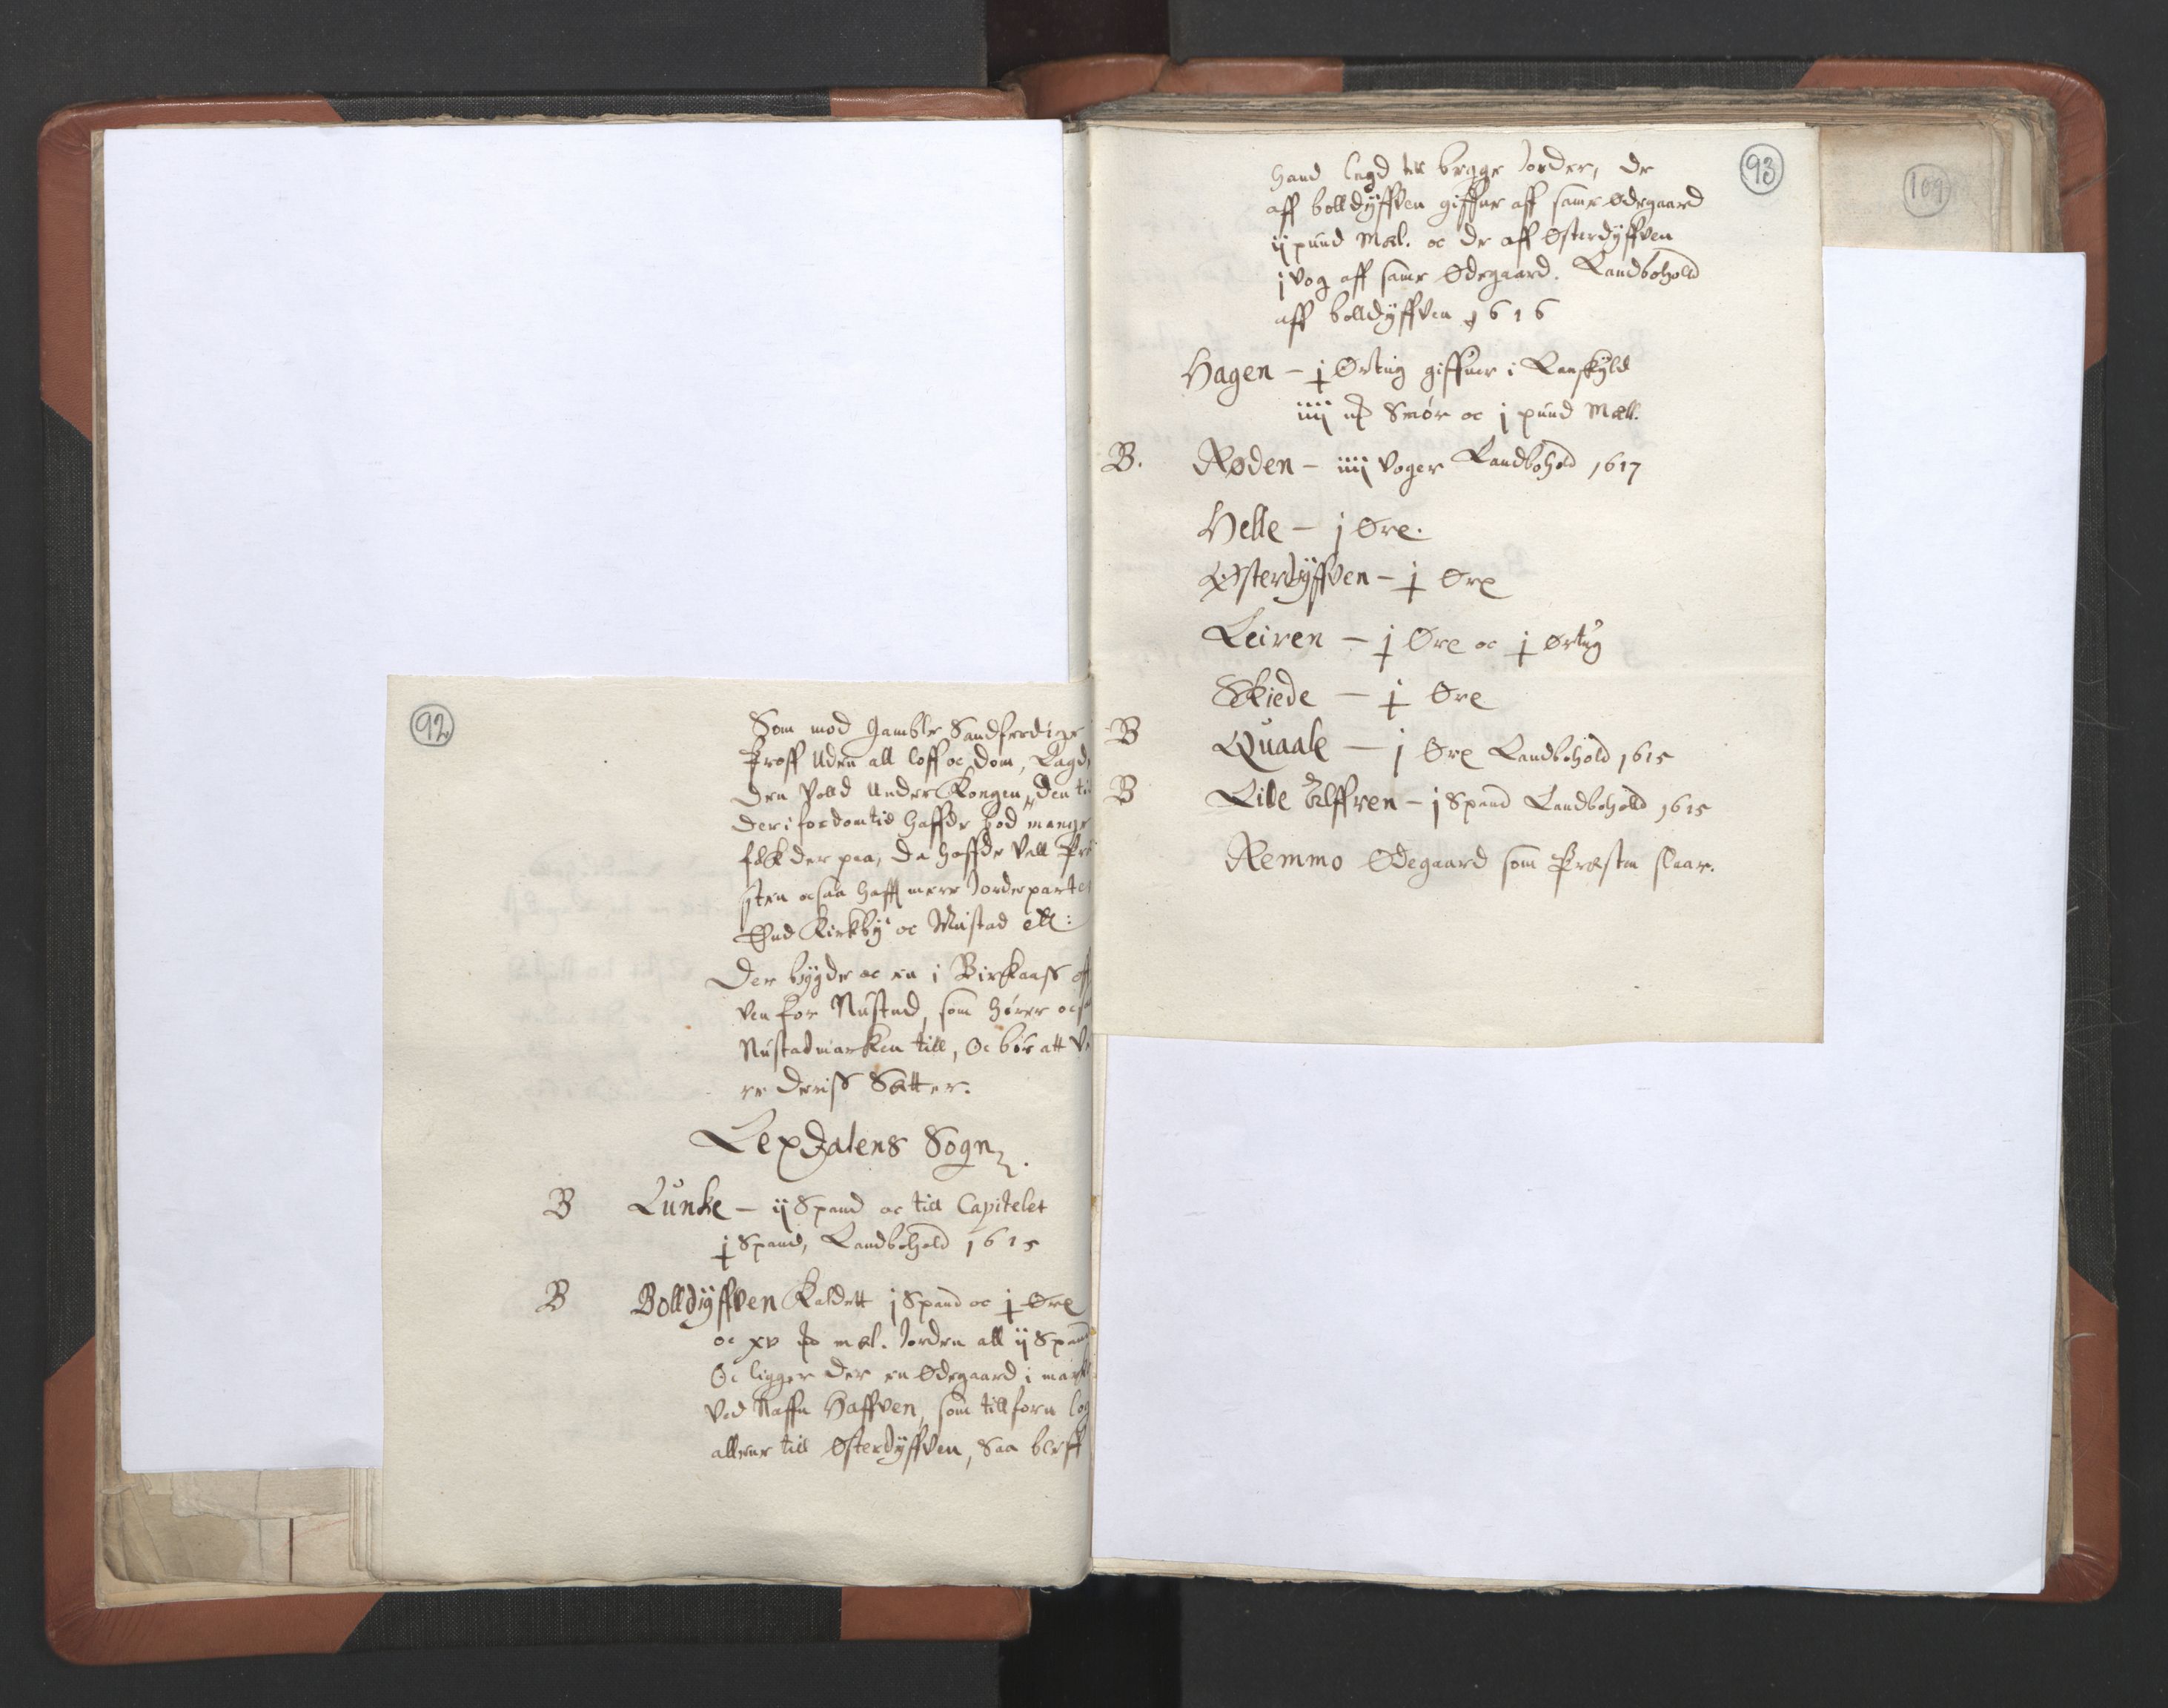 92
Som mod gamble Sandferdige
Proff uden all loff oc dom, Lagde
den vold under Kongen, den tid
der i fordom tid haffde bod mange
folk der paa, da haffde vell Pre
sten ocsaa hafft mere Jordeparter
End Kirkby oc Mustad ett:
Der bygde oc en i Birkaass off
ven for Nustad, som hører ocsaa
Nustadmarken till, Oc bør att ve
re deriss Sætter.
Lexdalens Sogn.
B Lunke – ij Spand oc till Capitelet
j Spand, Landbohold 1615
B Bolldyffven Kaldett j Spand oc j Øre
oc xv mæl. Jorden all ij Spand
Oc ligger der en Ødegaard i marken
ved Naffn Haffven, som tillforn log
allene till Østerdyffven, Saa bleff
93
hand lagd till begge Jorder, de
aff bolldyffven giffver aff same ødegaard
ij pund Mæl. oc de aff Østerdyffven
j vog aff same Ødegaard. Landbohold
aff bolldyffven 1616
Hagen – j Ørtug giffver i Lanskyld
iiij Smør oc j pund Mæll.
B. Røden – iiij voger Landbohold 1617
Helle – j Øre.
Østerdyffven – j Øre
Leiren – j Øre oc j ørtug
Skiede – j Øre
B Quaale – j Øre Landbohold 1615
B Lile Elffven – j Spand Landbohold 1615
Remmo Ødegaard som Præsten slaar.
109